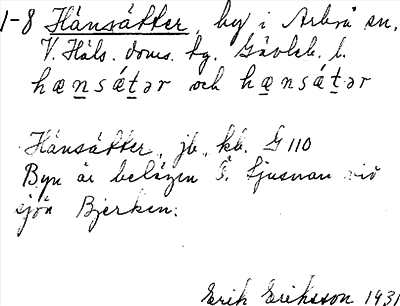 1-8 Hånsätter, by i Arbrå sn,
V. Häls. doms. hg. Gävleb. l.
hæn̲sát̲ər och hæ̲nsát̲ər
Hånsätter, jb, kb. G 110
Byn är belägen Ö. Ljusnan vid
sjön Bjerken.
Erik Eriksson 1931